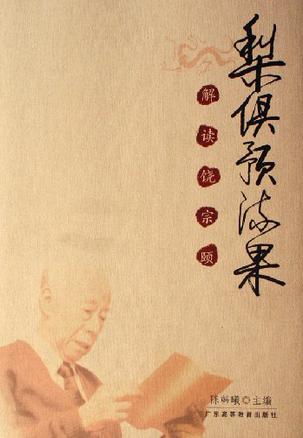 梨俱预流果
解读饶宗颐
陈韩曦◎主编
广东高等教育出版社